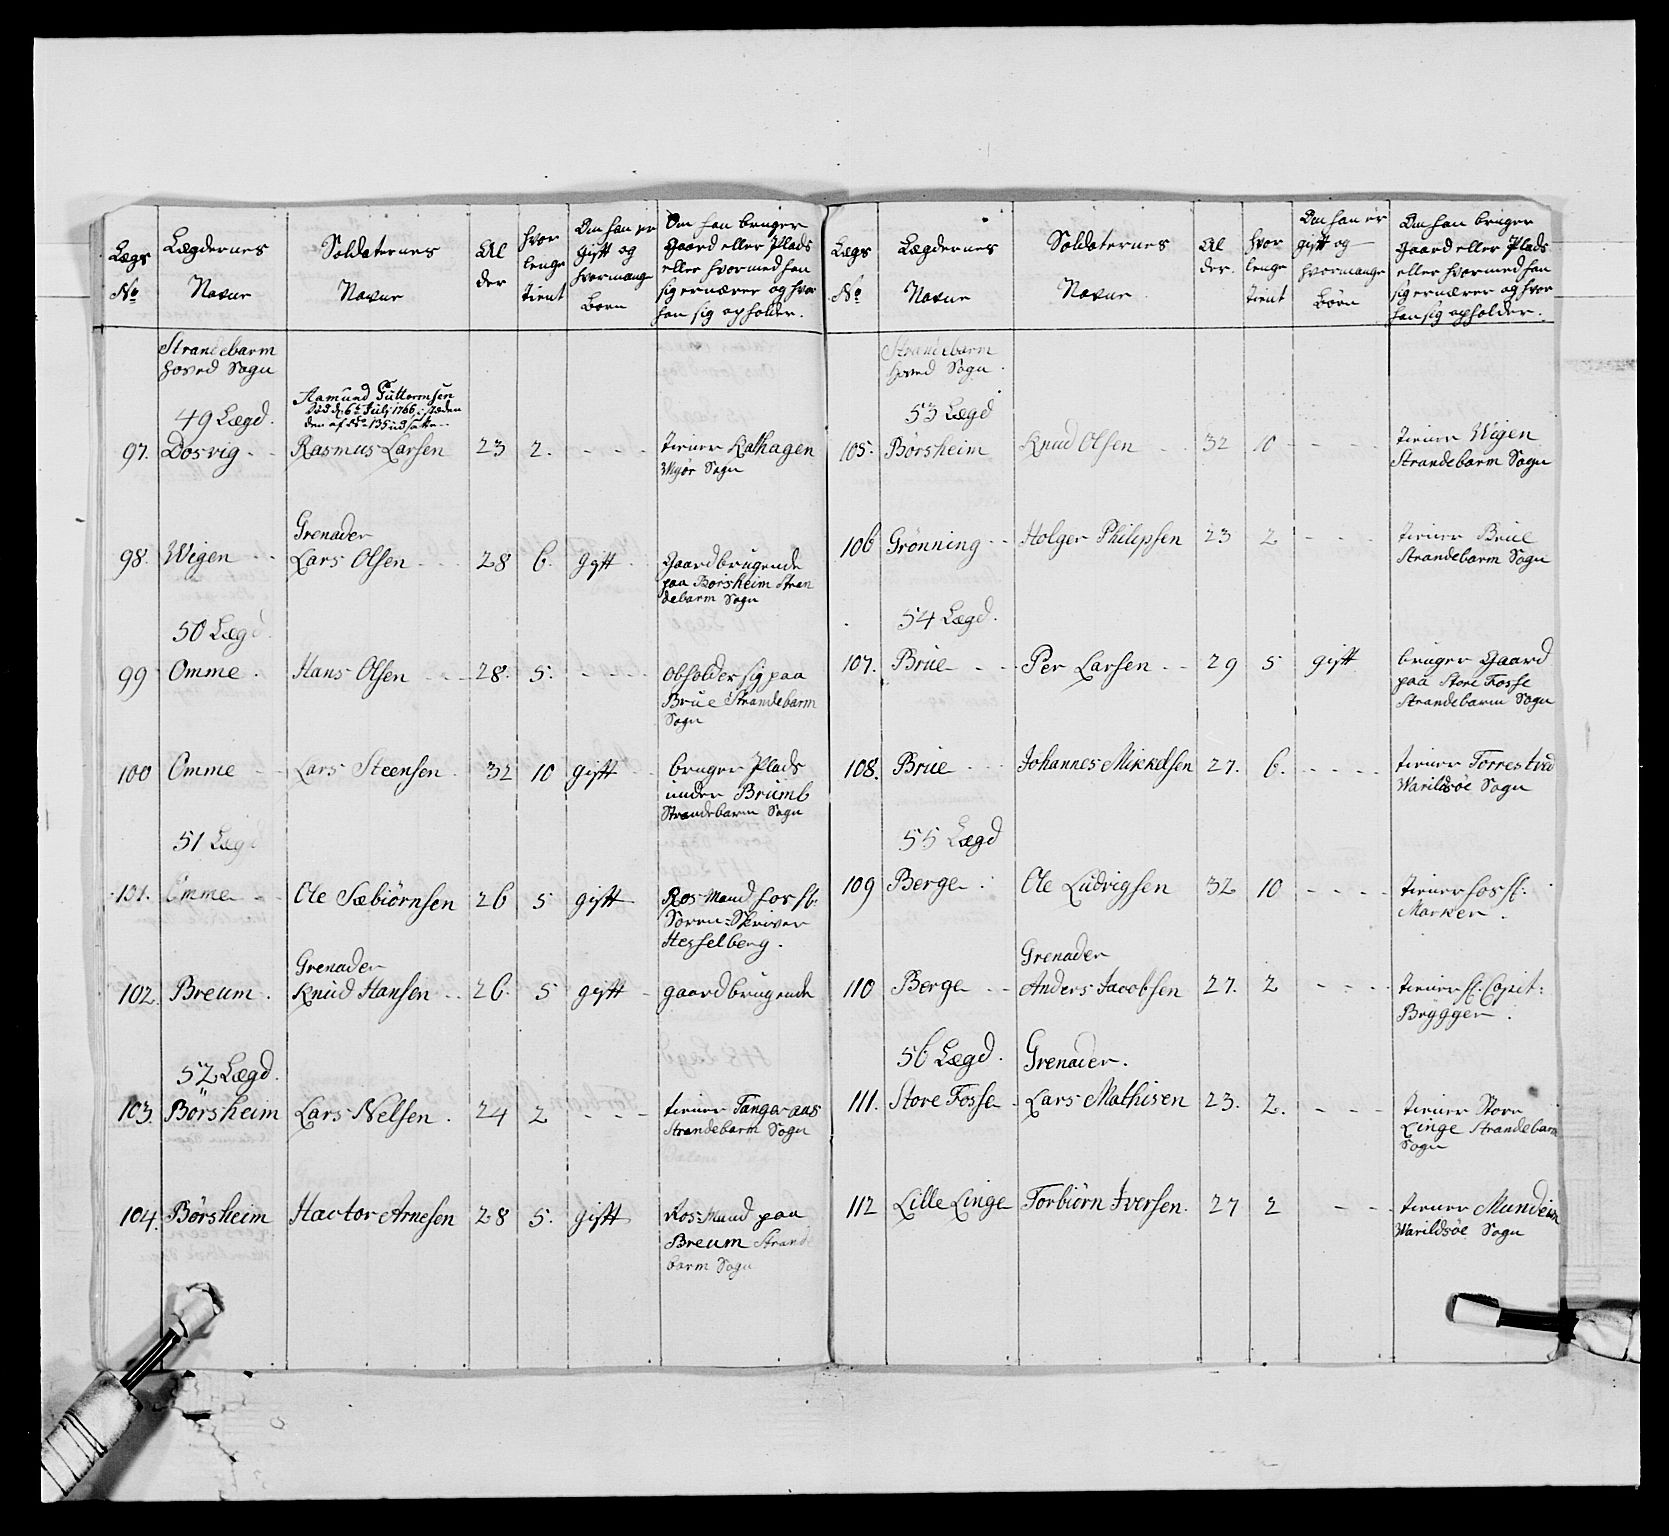 Lægs
No
Lægdernes
Navne
Soldaternes
Navne
Al
der
hvor
lenge
tient
Om han er
gift og
hvormange
Børn
Om han bruger
Gaard eller Plads
eller hvormed han
sig ernærer og hvor
han sig opholder.
Strandebarm
hoved Sogn
49 Lægd.
Aamund
død d. 6t Julij 1766 i steden
den af No 135 udsatte
97. Dosvig - - Rasmus Larsen 23 2. - - - tiener Kalhagen
Wigør Sogn
Grenader
98. Wigen - - Lars Olsen - - - 28 6. gift - Gaardbrugende
paa Børsheim Stran
debarm Sogn
50 Lægd.
99 Omme . Hans Olsen - - - 28. 5. - - - - obholder sig paa
Brue Strandebarm
Sogn
100 Omme - - Lars Steensen . 32 10 gift - - bruger Plads
under
Strandebarm Sogn
51 Lægd
101. Omme - - Ole Sæbiørnsen 26 5 gift Ros Mand hos Hr:
Soren-Skriver
Hesselberg .
Grenader
102. Breum . Knud Hansen - - 26. 5 gift - gaardbrugende
52 Lægd.
103. Börsheim Lars Nelsen . 24 2 - - - tiener Tangeraas
Strandebarm Sogn
104. Børsheim Hactor Arnesen 28 5. gift Ros-Mand paa
Breum Strande
barm Sogn
Lægs
No
Lægdernes
Navne
Soldaternes
Navne
Al
der.
hvor
lenge
tient
Om han er
gift og
hvormange
Børn
Om han bruger
Gaard eller Plads
eller hvormed han
sig ernærer og hvor
han sig opholder.
Strandebarm
hoved Sogn .
53 Lægd
105. Børsheim Knud Olsen - - 32 10 - - - - tiener Wigen
Strandebarm Sogn
106 Grønning - - Holger Philipsen 23 2 - - - tiener Brue
Strandebarm Sogn
54 Lægd.
107. Brue - - - Per Larsen - - 29 5 gift bruger Gaard
paa Store Fosse
Strandebarm Sogn
108. Brue - - - Johannes Mikkelsen 27. 6. - - - - tiener Torrestved
Warildsøe Sogn
55 Lægd
109 Berge . Ole Ludvigsen 32 10 - - - - tiener hos Hr.
Marker .
Grenader
110 Berge - - Anders Jacobsen 27. 2 - - - tiener Hr. Capit:
Brÿgger .
56 Lægd. Grenader.
111. Store Fosse - Lars Mathisen 23. 2. - - - tiener Store
Linge Strandebarm
Sogn
112 Lille Linge Torbiørn Iversen. 27 2 - - tiener
Warildsøe Sogn